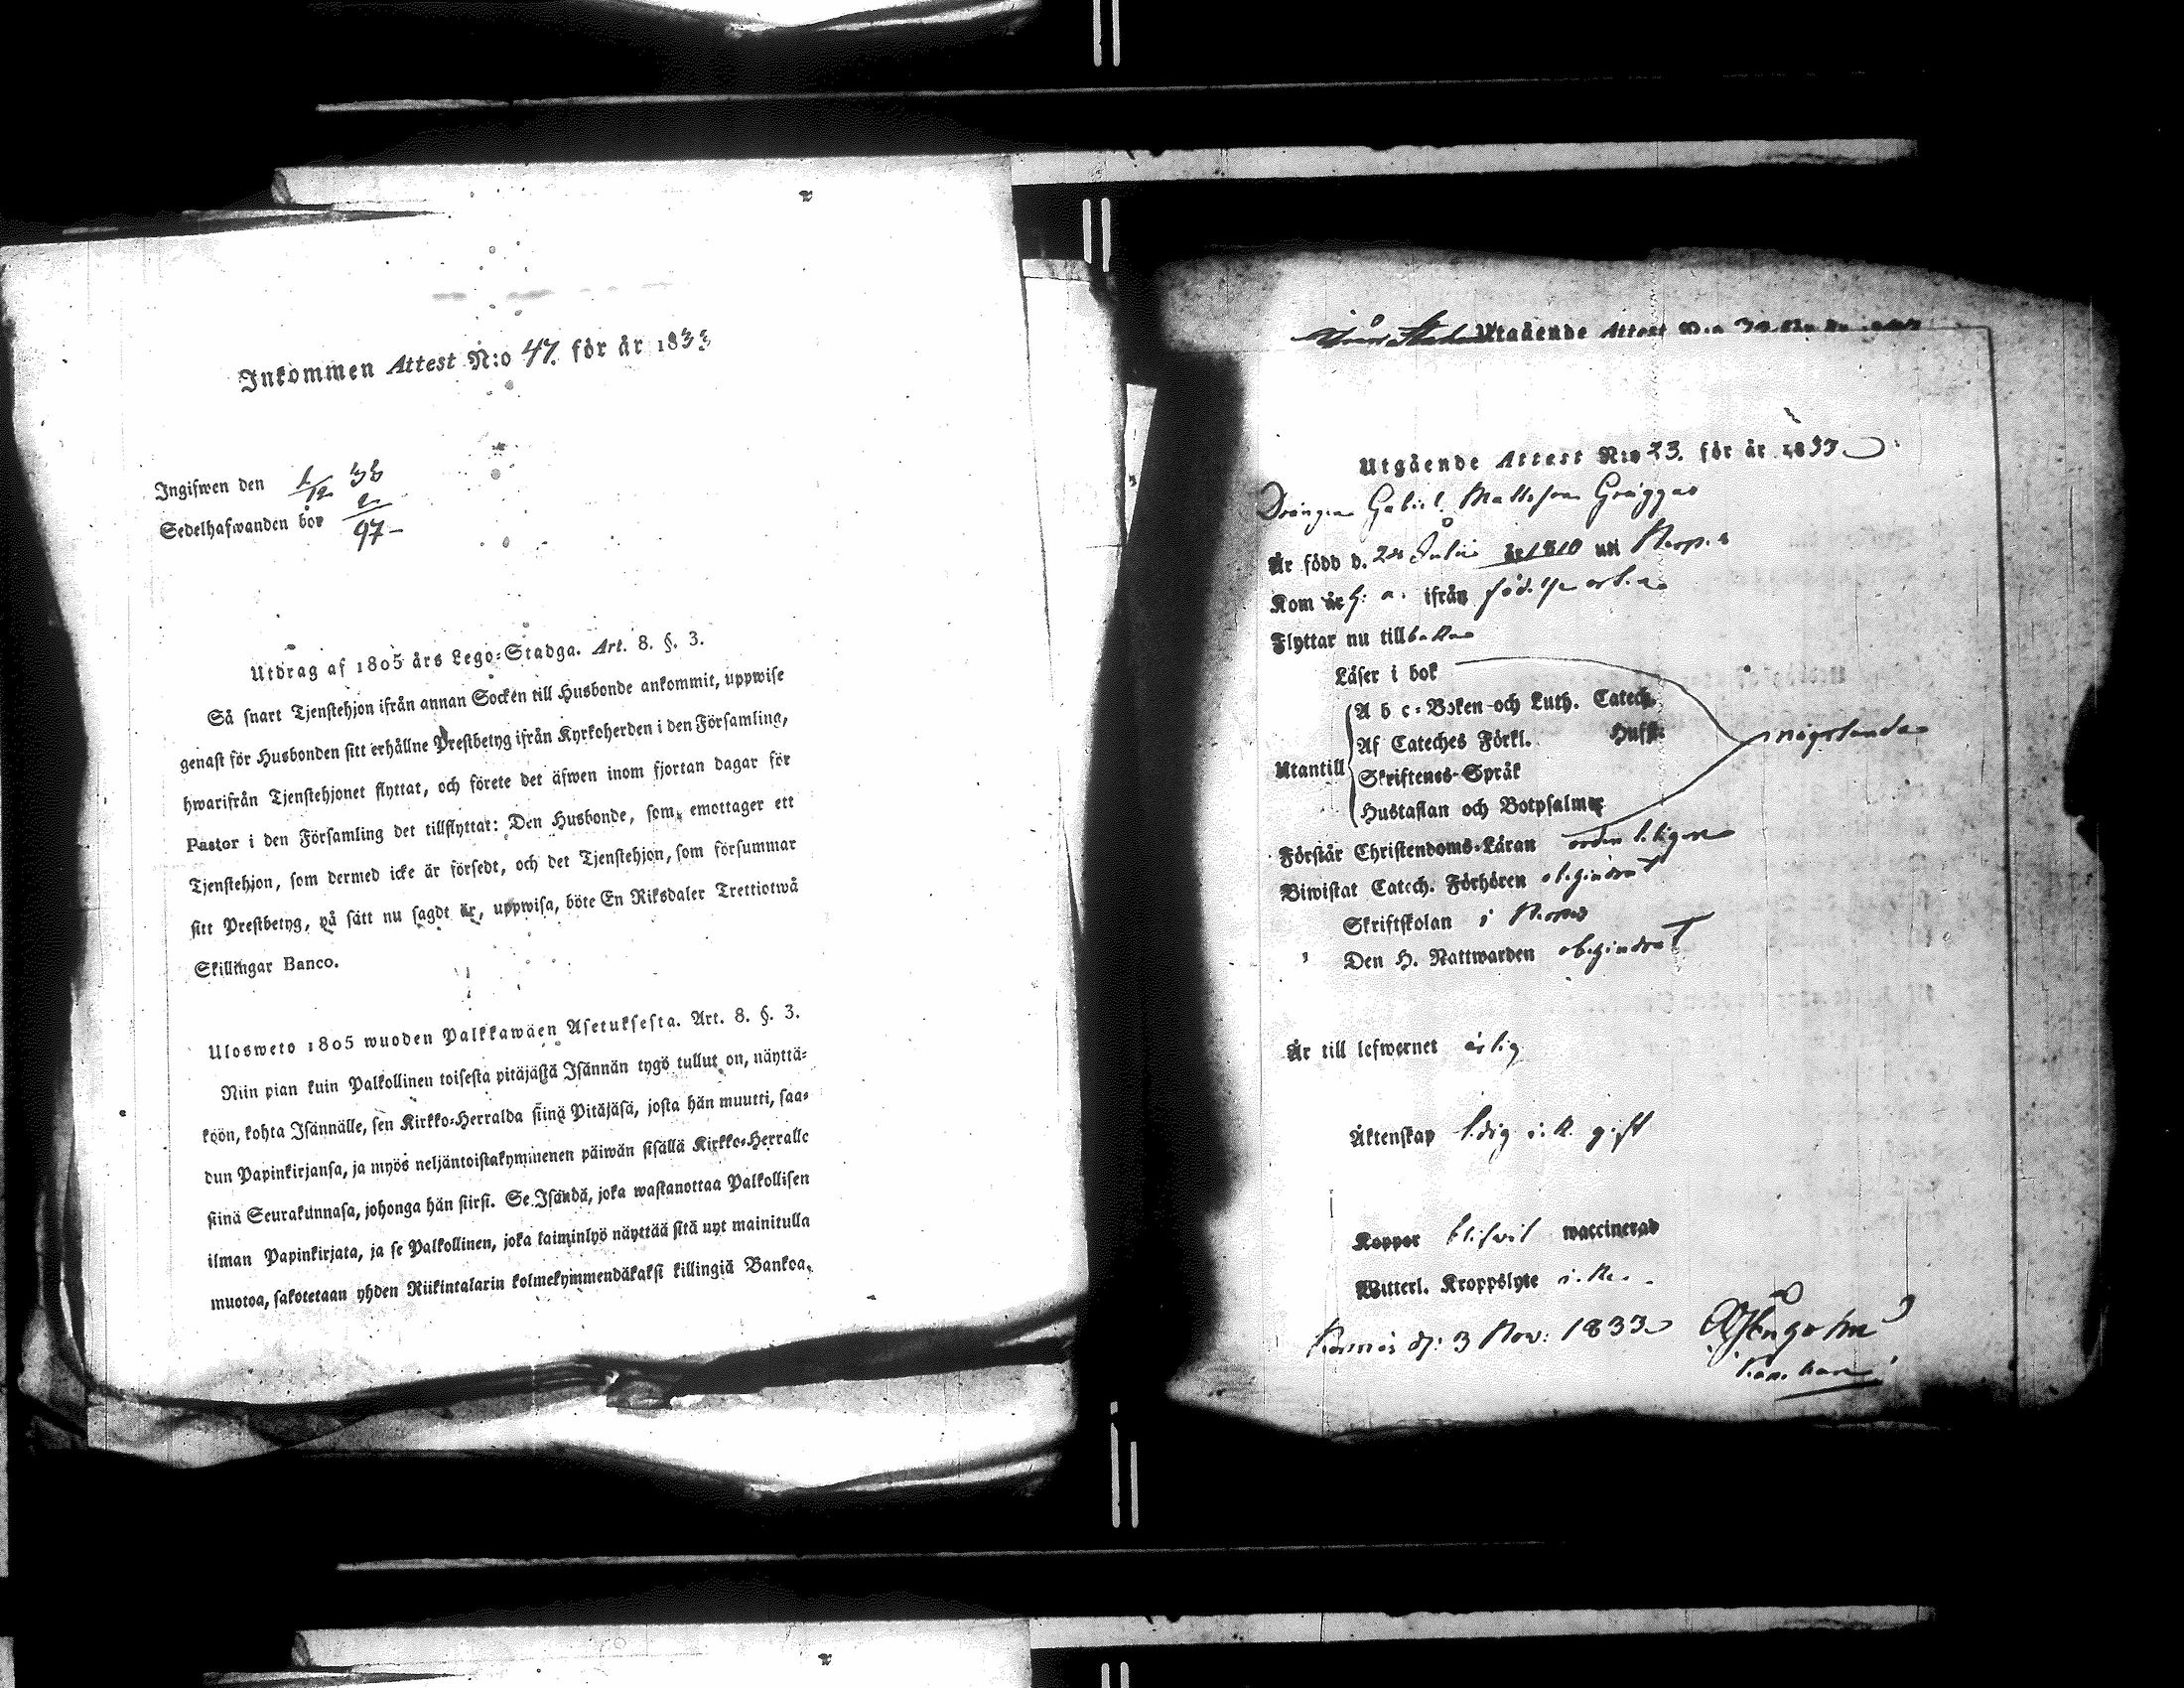 Inkommen Attest N:o 47. för år 1833
Ingifwen den 1/12 33
Sedelhafwanden bor 97
Utdrag af 1805 års Lego-Stadga. Art. 8. §. 3.
Så snart Tjenstehjon ifrån annan Socken till Husbonde ankommit, uppwise
genast för Husbonden sitt erhållne Prestbetyg ifrån Kyrkoherden i den Församling,
hwarifrån Tjenstehjonet flyttat, och förete det äfwen inom fjortan dagar för
Pastor i den Församling det tillflyttat: Den Husbonde, som emottager ett
Tjenstehjon, som dermed icke är försedt, och det Tjenstehjon, som försummar
sitt Prestbetyg, på sätt nu sagdt är, uppwisa, böte En Riksdaler Trettiotwå
Skillingar Banco.
Ulosweto 1805 wuoden Palkkawäen Asetuksesta. Art. 8. §. 3.
Niin pian kuin Palkollinen toisesta pitäjästä Isännän tygö tullut on, näyttä-
köön, kohta Isännälle, sen Kirkko-Herralda siinä Pitäjäsä, josta hän muutti, saa-
dun Papinkirjansa, ja myös neljäntoistakymmenen päiwän sisällä Kirkko-Herralle
siinä Seurakunnasa, johonga hän siirsi. Se Isändä, joka wastanottaa Palkollisen
ilman Papinkirjata, ja se Palkollinen, joka laiminlyö näyttää sitä nyt mainitulla
muotoa, sakotetaan yhden Riikintalarin kolmekymmendäkaksi killingiä Bankoa.
Utgående Attest N:o
Utgående Attest N:o 23. för år 1833
Drängen Gabriel Mattsson Gräggas
Är född d. 28 Julii år 1810 uti
Kom år h. a. ifrån födelse orten
Flyttar nu tillbaka
Läser i bok
Utantill
A b c-Boken och Luth. Catech.
Af Cateches Förkl. Husfl.
Skriftenes-Språk
Hustaflan och Botpsalmer
någorlunda
Förstår Christendoms-Läran ordenteligen
Biwistat Catech. Förhören obehindrat
Skriftskolan i
Den H. Nattwarden obehindrat
Är till lefwernet ärlig
Äktenskap ledig
Koppor blifvit waccinerad
Witterl. Kroppslyte
d: 3 Nov: 1833